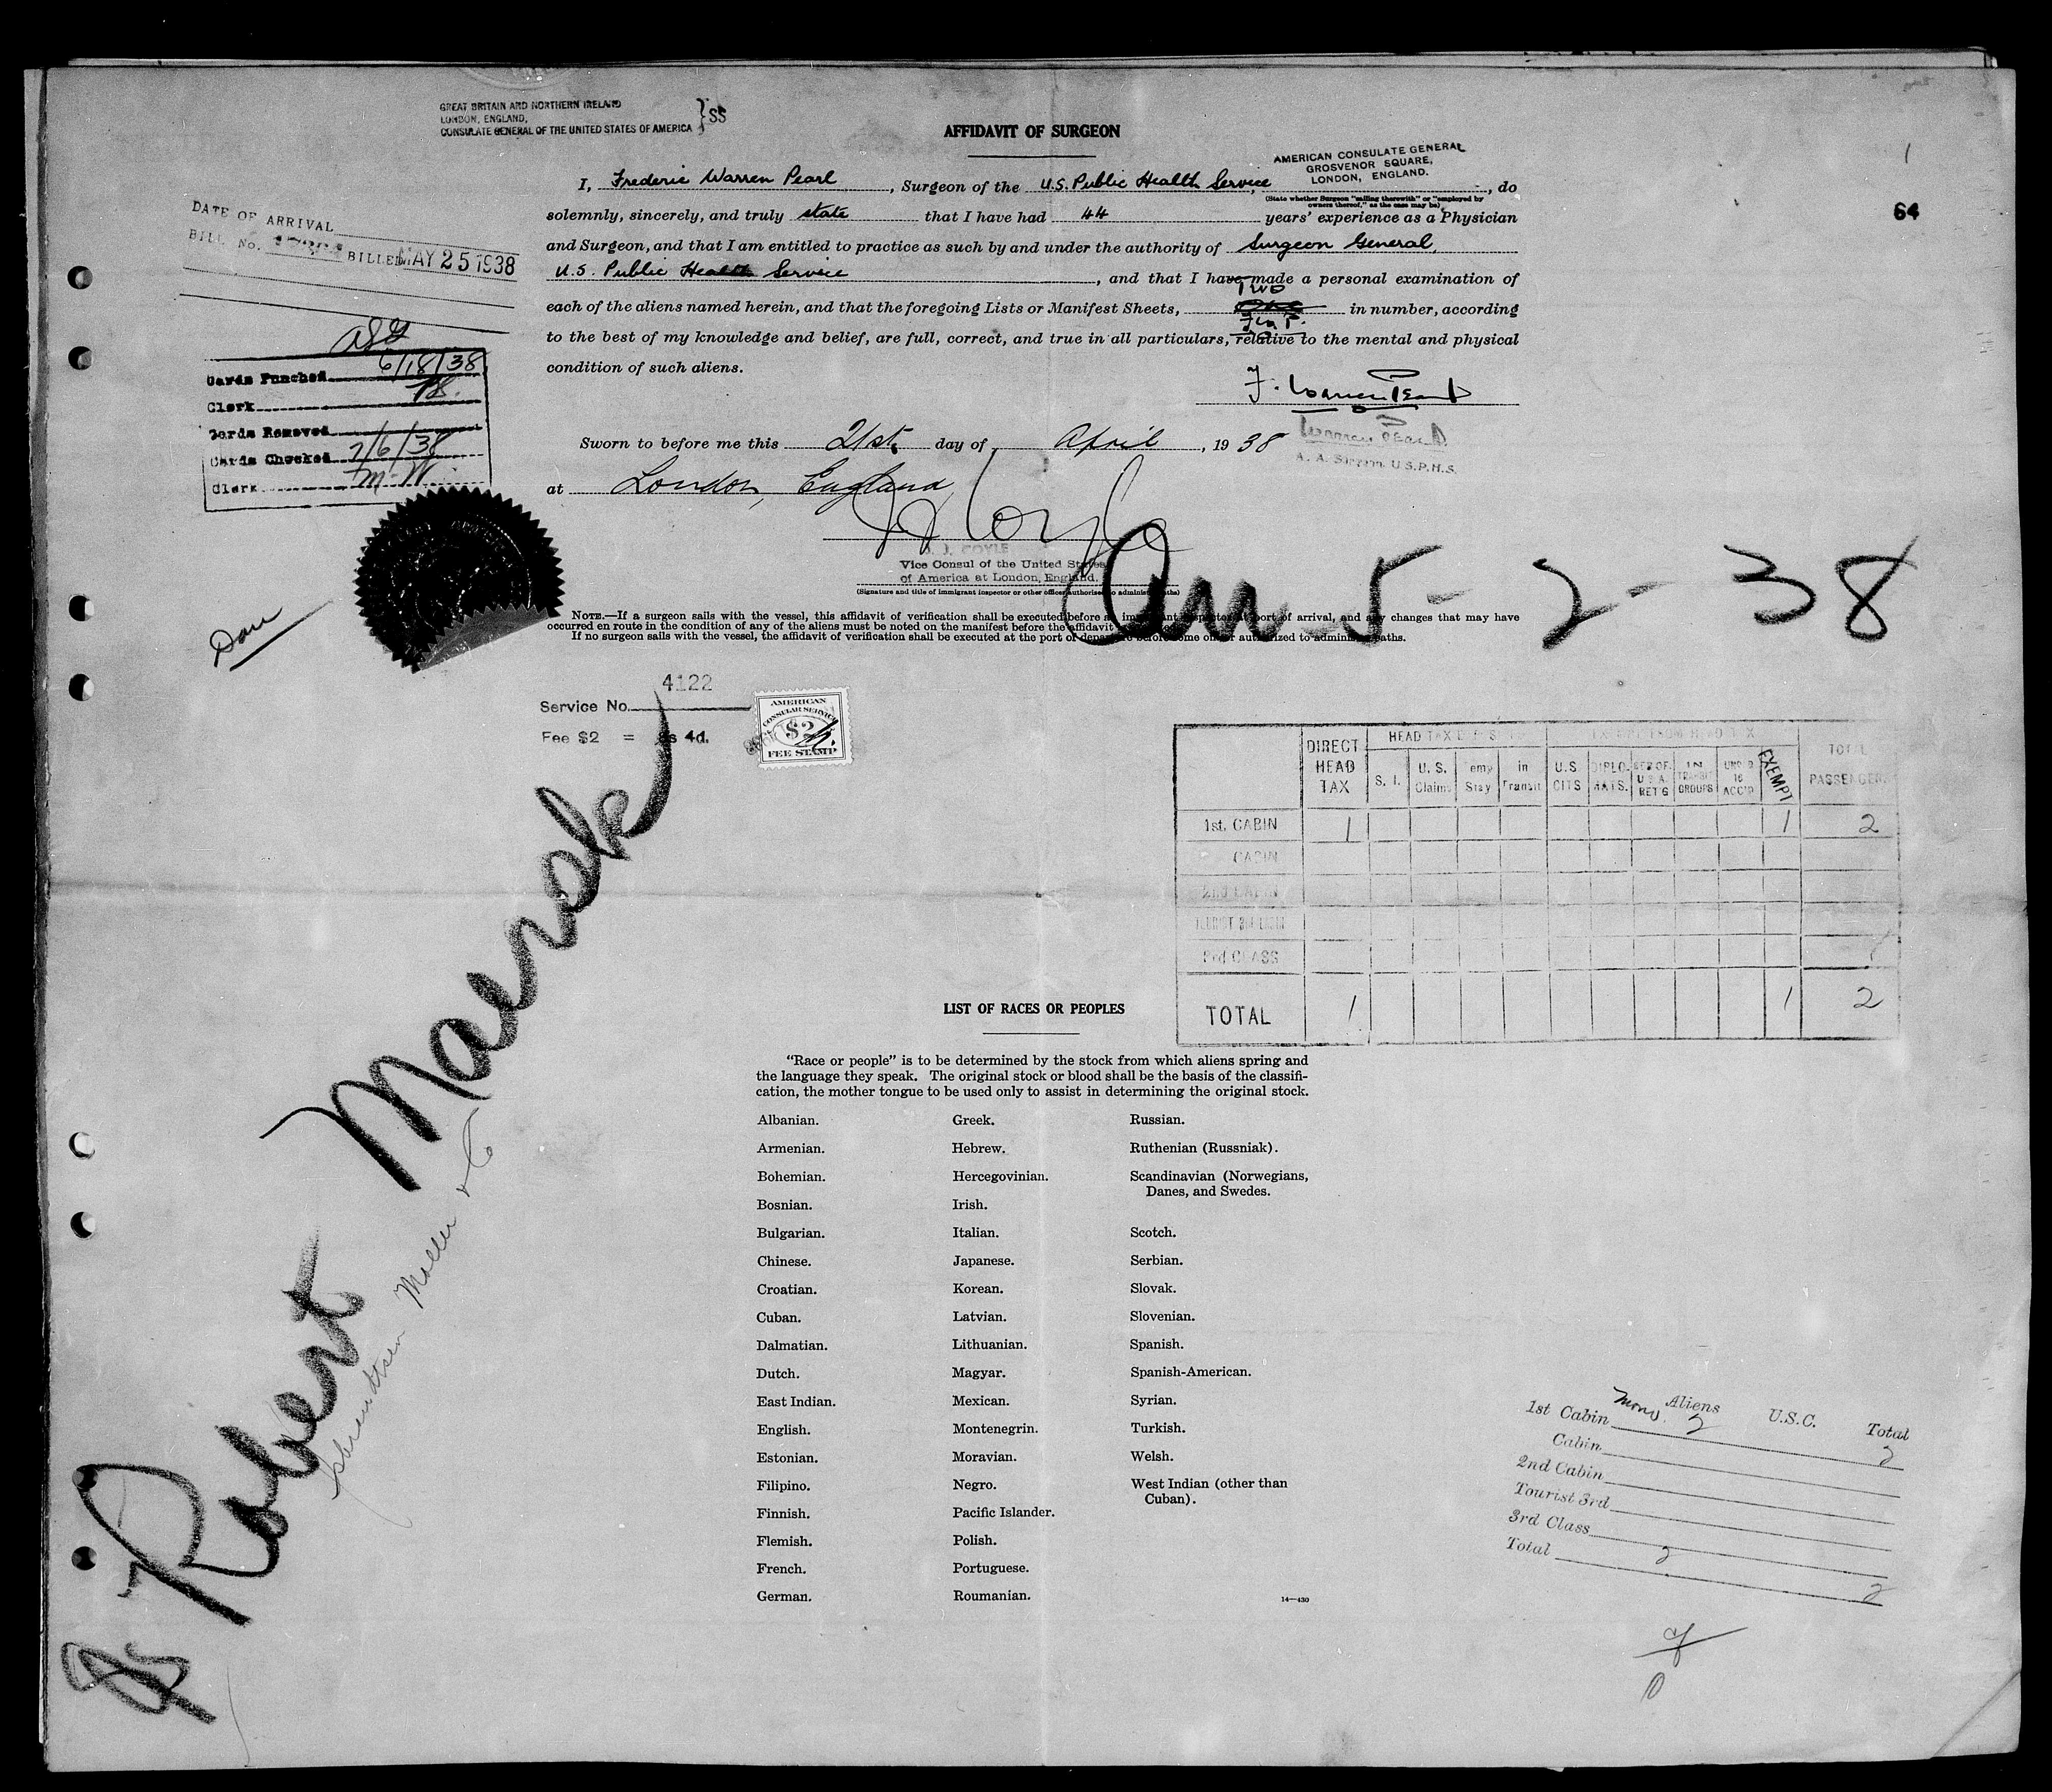 GREAT BRITAIN AND NORTHERN IRELAND
LONDON, ENGLAND,
CONSULATE GENERAL OF THE UNITED STATES OF AMERICA } SS
AFFIDAVIT OF SURGEON
AMERICAN CONSULATE GENERAL
GROSVENOR SQUARE,
LONDON, ENGLAND.
1
64
I, Frederic Warren Pearl, Surgeon of the U.S. Public Health Service, do
(State whether Surgeon "sailing therewith" or "employed by
owners thereof," as the case may be)
solemnly, sincerely, and truly state that I have had 44 years' experience as a Physician
and Surgeon, and that I am entitled to practice as such by and under the authority of Surgeon General,
U.S. Public Health Service, and that I have made a personal examination of
Two
each of the aliens named herein, and that the foregoing Lists or Manifest Sheets, One in number, according
to the best of my knowledge and belief, are full, correct, and true in all particulars, relative to the mental and physical
condition of such aliens.
F. Warren Pearl
Warren Pearl
A. A. Surgeon U.S.P.H.S.
Sworn to before me this 21st day of April, 1938
at London, England
J. J. COYLE
Vice Consul of the United States
of America at London, England.
(Signature and title of immigrant inspector or other officer authorised to administer oaths)
DATE OF ARRIVAL
BILL No. BILLED MAY 25 1938
Cards Punched 6/18/38
Clerk
Cards Removed
Cards Checked 7/6/38
Clerk M.W.
NOTE.—If a surgeon sails with the vessel, this affidavit of verification shall be executed before an immigrant inspector at port of arrival, and any changes that may have
occurred en route in the condition of any of the aliens must be noted on the manifest before the affidavit
If no surgeon sails with the vessel, the affidavit of verification shall be executed at the port of departure before some officer authorized to administer oaths.
5-2-38
Service No. 4122
Fee $2 = 8s 4d.
AMERICAN
CONSULAR SERVICE
$2
FEE STAMP
DIRECT HEAD TAX
HEAD TAX DEPOSIT
EXEMPT FROM HEAD TAX
TOTAL PASSENGER
S. I. U. S. Claim Temp Stay in Transit U.S CITS DIPLO-MATS. RES OF U S A. RET'G IN TRANSIT GROUPS UND'R 16 ACC'P EXEMPT
1st. CABIN 1 1 2
CABIN
2nd CABIN
TOURIST 3rd CABIN
3rd CLASS
TOTAL 1 1 2
Robert Maersk
Moller
LIST OF RACES OR PEOPLES
"Race or people" is to be determined by the stock from which aliens spring and
the language they speak. The original stock or blood shall be the basis of the classifi-
cation, the mother tongue to be used only to assist in determining the original stock.
Albanian. Greek. Russian.
Armenian. Hebrew. Ruthenian (Russniak).
Bohemian. Hercegovinian. Scandinavian (Norwegians,
Danes, and Swedes.
Bosnian. Irish.
Bulgarian. Italian. Scotch.
Chinese. Japanese. Serbian.
Croatian. Korean. Slovak.
Cuban. Latvian. Slovenian.
Dalmatian. Lithuanian. Spanish.
Dutch. Magyar. Spanish-American.
East Indian. Mexican. Syrian.
English. Montenegrin. Turkish.
Estonian. Moravian. Welsh.
Filipino. Negro. West Indian (other than
Cuban).
Finnish. Pacific Islander.
Flemish. Polish.
French. Portuguese.
German. Roumanian.
14—430
Aliens U.S.C. Total
1st Cabin 2 2
Cabin
2nd Cabin
Tourist 3rd
3rd Class
Total 2 2